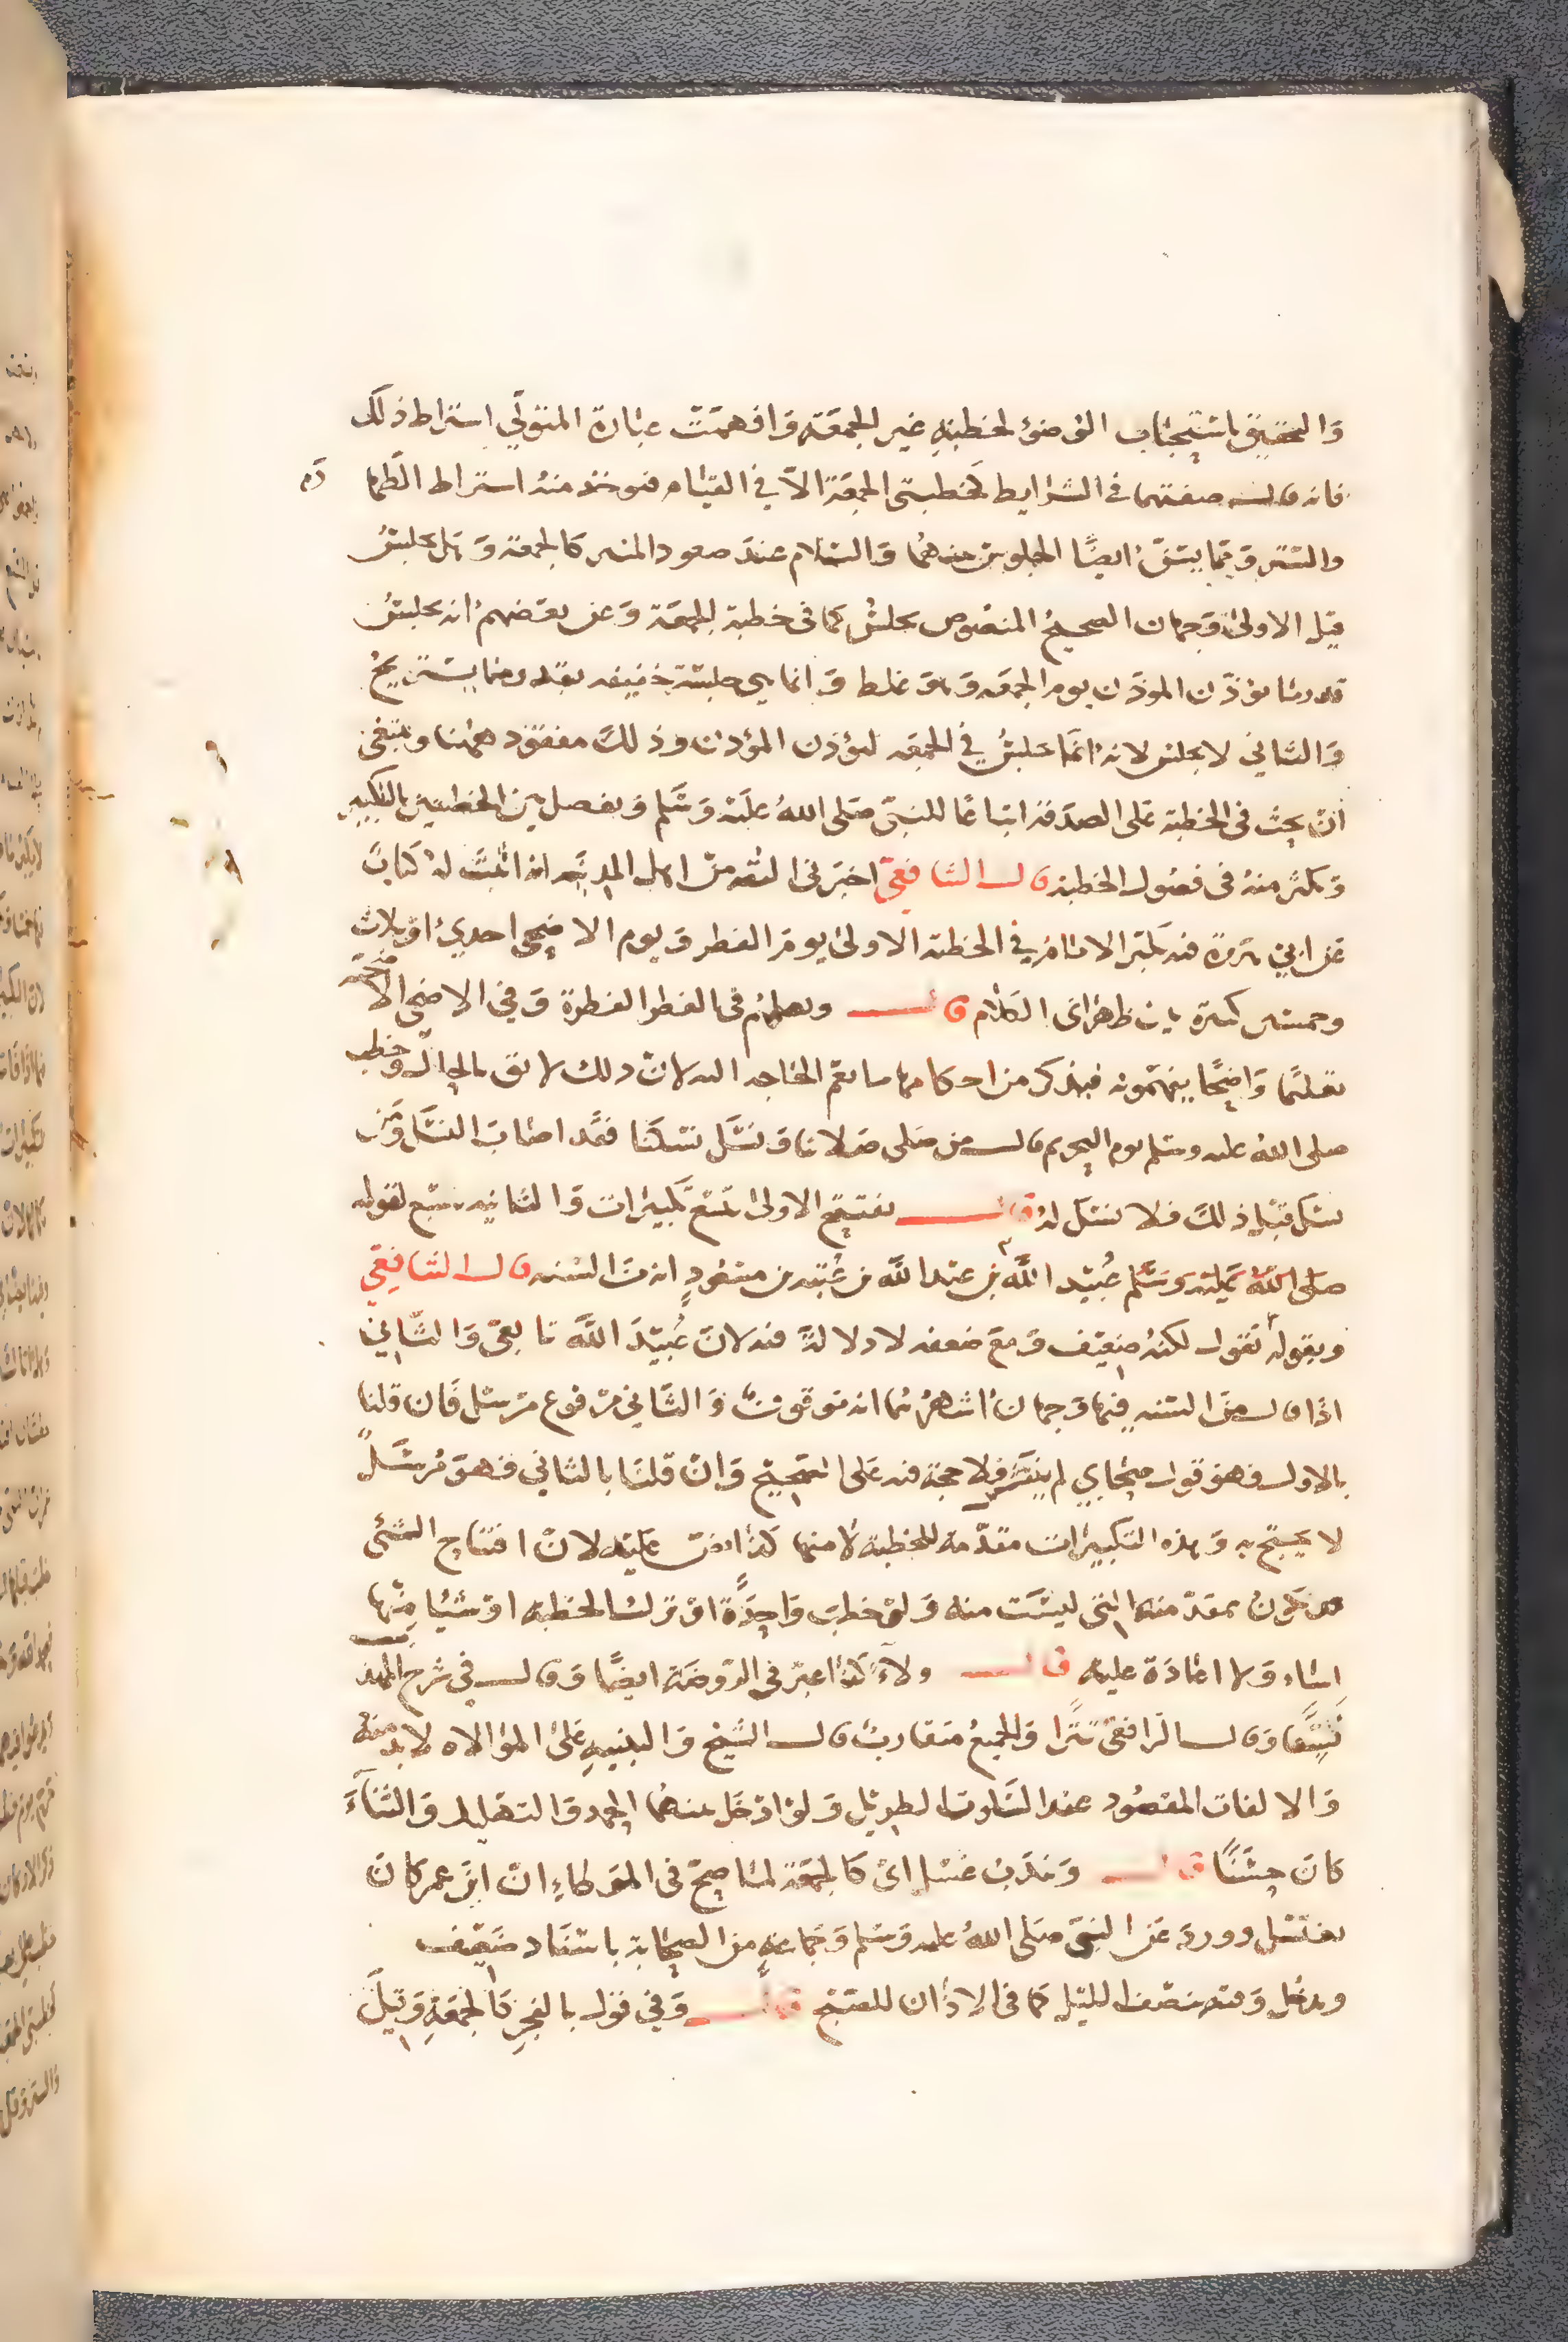 والتحقيق باستحباب الوضوء لخطبة غير الجمعة وافهمت عبارة المتولي اشتراط ذلك
فانه قال صفتهما في الشرايط كخطبتي الجمعة الا في القيام فيوخذ منه اشتراط الطهارة
والستر ومما يستن ايضا الجلوس بينهما والسلام عند صعود المنبر كالجمعة وهل يجلس
قبل الاولى وجهان الصحيح المنصوص يجلس كما في خطبة الجمعة وعن بعضهم انه يجلس
قدر ما يؤذن الموذن يوم الجمعة وهو غلط وانما هي جلسة خفيفة بقدر ما يستريح
والثاني لا يجلس لانه انما يجلس في الجمعة ليؤذن المؤذن وذلك مفقود ههنا وينبغي
ان يحث في الخطبة على الصدقة اتباعا للنبي صلى الله عليه وسلم ويفصل بين الخطبتين بالتكبير
ويكثر منه في فصول الخطبة قال الشافعي اخبرني الثقة من اهل المدينة انه اثبت له كتاب
عن ابي هريرة فيه يكبر الامام في الخطبة الاولى يوم الفطر ويوم الاضحى احدى او ثلاث
وخمسين تكبيرة بين ظهراني الكلام قال ويعلمهم في الفطر الفطرة وفي الاضحى الاضحية
تعليما واضحا يفهمونه فيذكر من احكامها ما تعم الحاجة اليه لان ذلك لائق بالحال وخطب
صلى الله عليه وسلم يوم النحر ثم قال من صلى صلاتنا ونسك نسكنا فقد اصاب النسك ومن
نسك قبل ذلك فلا نسك له قال يفتتح الاولى بتسع تكبيرات والثانية بسبع لقوله
صلى الله عليه وسلم عبيد الله بن عبد الله بن عتبة بن مسعود انه من السنة قال الشافعي
وبقوله نقول لكنه ضعيف ومع ضعفه لا دلالة فيه لان عبيد الله تابعي والثاني
اذا قال من السنة فيها وجهان اشهرهما انه موقوف والثاني مرفوع مرسل فان قلنا
بالاول فهو قول صحابي لم ينتشر فلا حجة فيه على الصحيح وان قلنا بالثاني فهو مرسل
لا يحتج به وهذه التكبيرات مقدمة للخطبة لا منها كذا نص عليه لان افتتاح الشئ
قد يكون بمقدمته التي ليست منه ولو خطب واحدة او ترك الخطبة او شيئا منها
اساء ولا اعادة عليه قال ولاء كذا عبر في الروضة ايضا وقال في شرح المهذب
نسقا وقال الرافعي تترا والجميع متقارب قال الشيخ والتنبيه على الموالاه لا بد منه
والا لفات المقصود عند السكوت الطويل ولو ادخل بينهما الحمد والتهليل والثناء
كان حسنا قال وندب غسل اي كالجمعة لما صح في الموطاء ان ابن عمر كان
يغتسل وورد عن النبي صلى الله عليه وسلم وجماعة من الصحابة باسناد ضعيف
ويدخل وقته بنصف الليل كما في الاذان للصبح قال وفي قول بالفجر كالجمعة وقيل